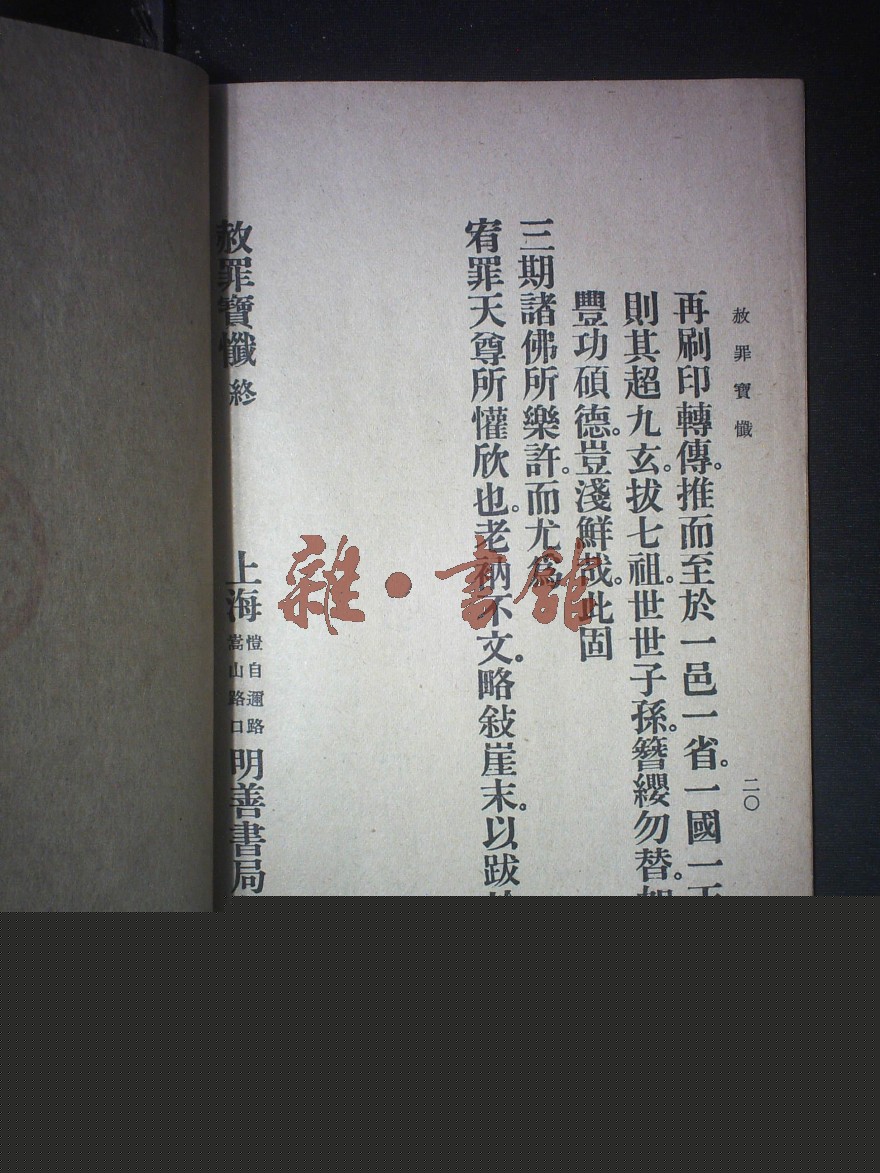 赦罪寶懺
二〇
再刷印轉傳。推而至於一邑一省。一國一
則其超九玄。拔七祖。世世子孫。簪纓勿替。
豐功碩德。豈淺鮮哉。此固
三期諸佛所樂許。而尤爲
宥罪天尊所懽欣也。老衲不文。略敍崖末。以跋
赦罪寶懺 終
上海
愷自邇路
嵩山路口
明善書局
雜·書館